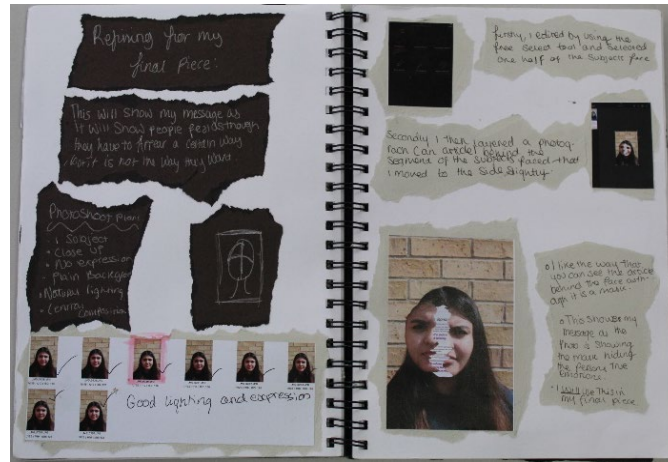 Refining for my
final piece:
This will show my message as
it will show people
they have to appear a certain way
is not the way they want
Photoshoot Plan:
1 Subject
• Close up
• No expression
• Plain Background
• Natural lighting
•
Good lighting and expression
firstly, I edited by using the
free select tool and selected
one half of the subjects face
Secondly I then layered a photog-
raph (an article) behind the
segment of the subjects face that
I moved to the side slightly.
• I like the way that
you can see the article
behind the face
it is a mask.
• This shows my
message as the
photo is showing
the mask hiding
the persons true
• I will use this in
my final piece.